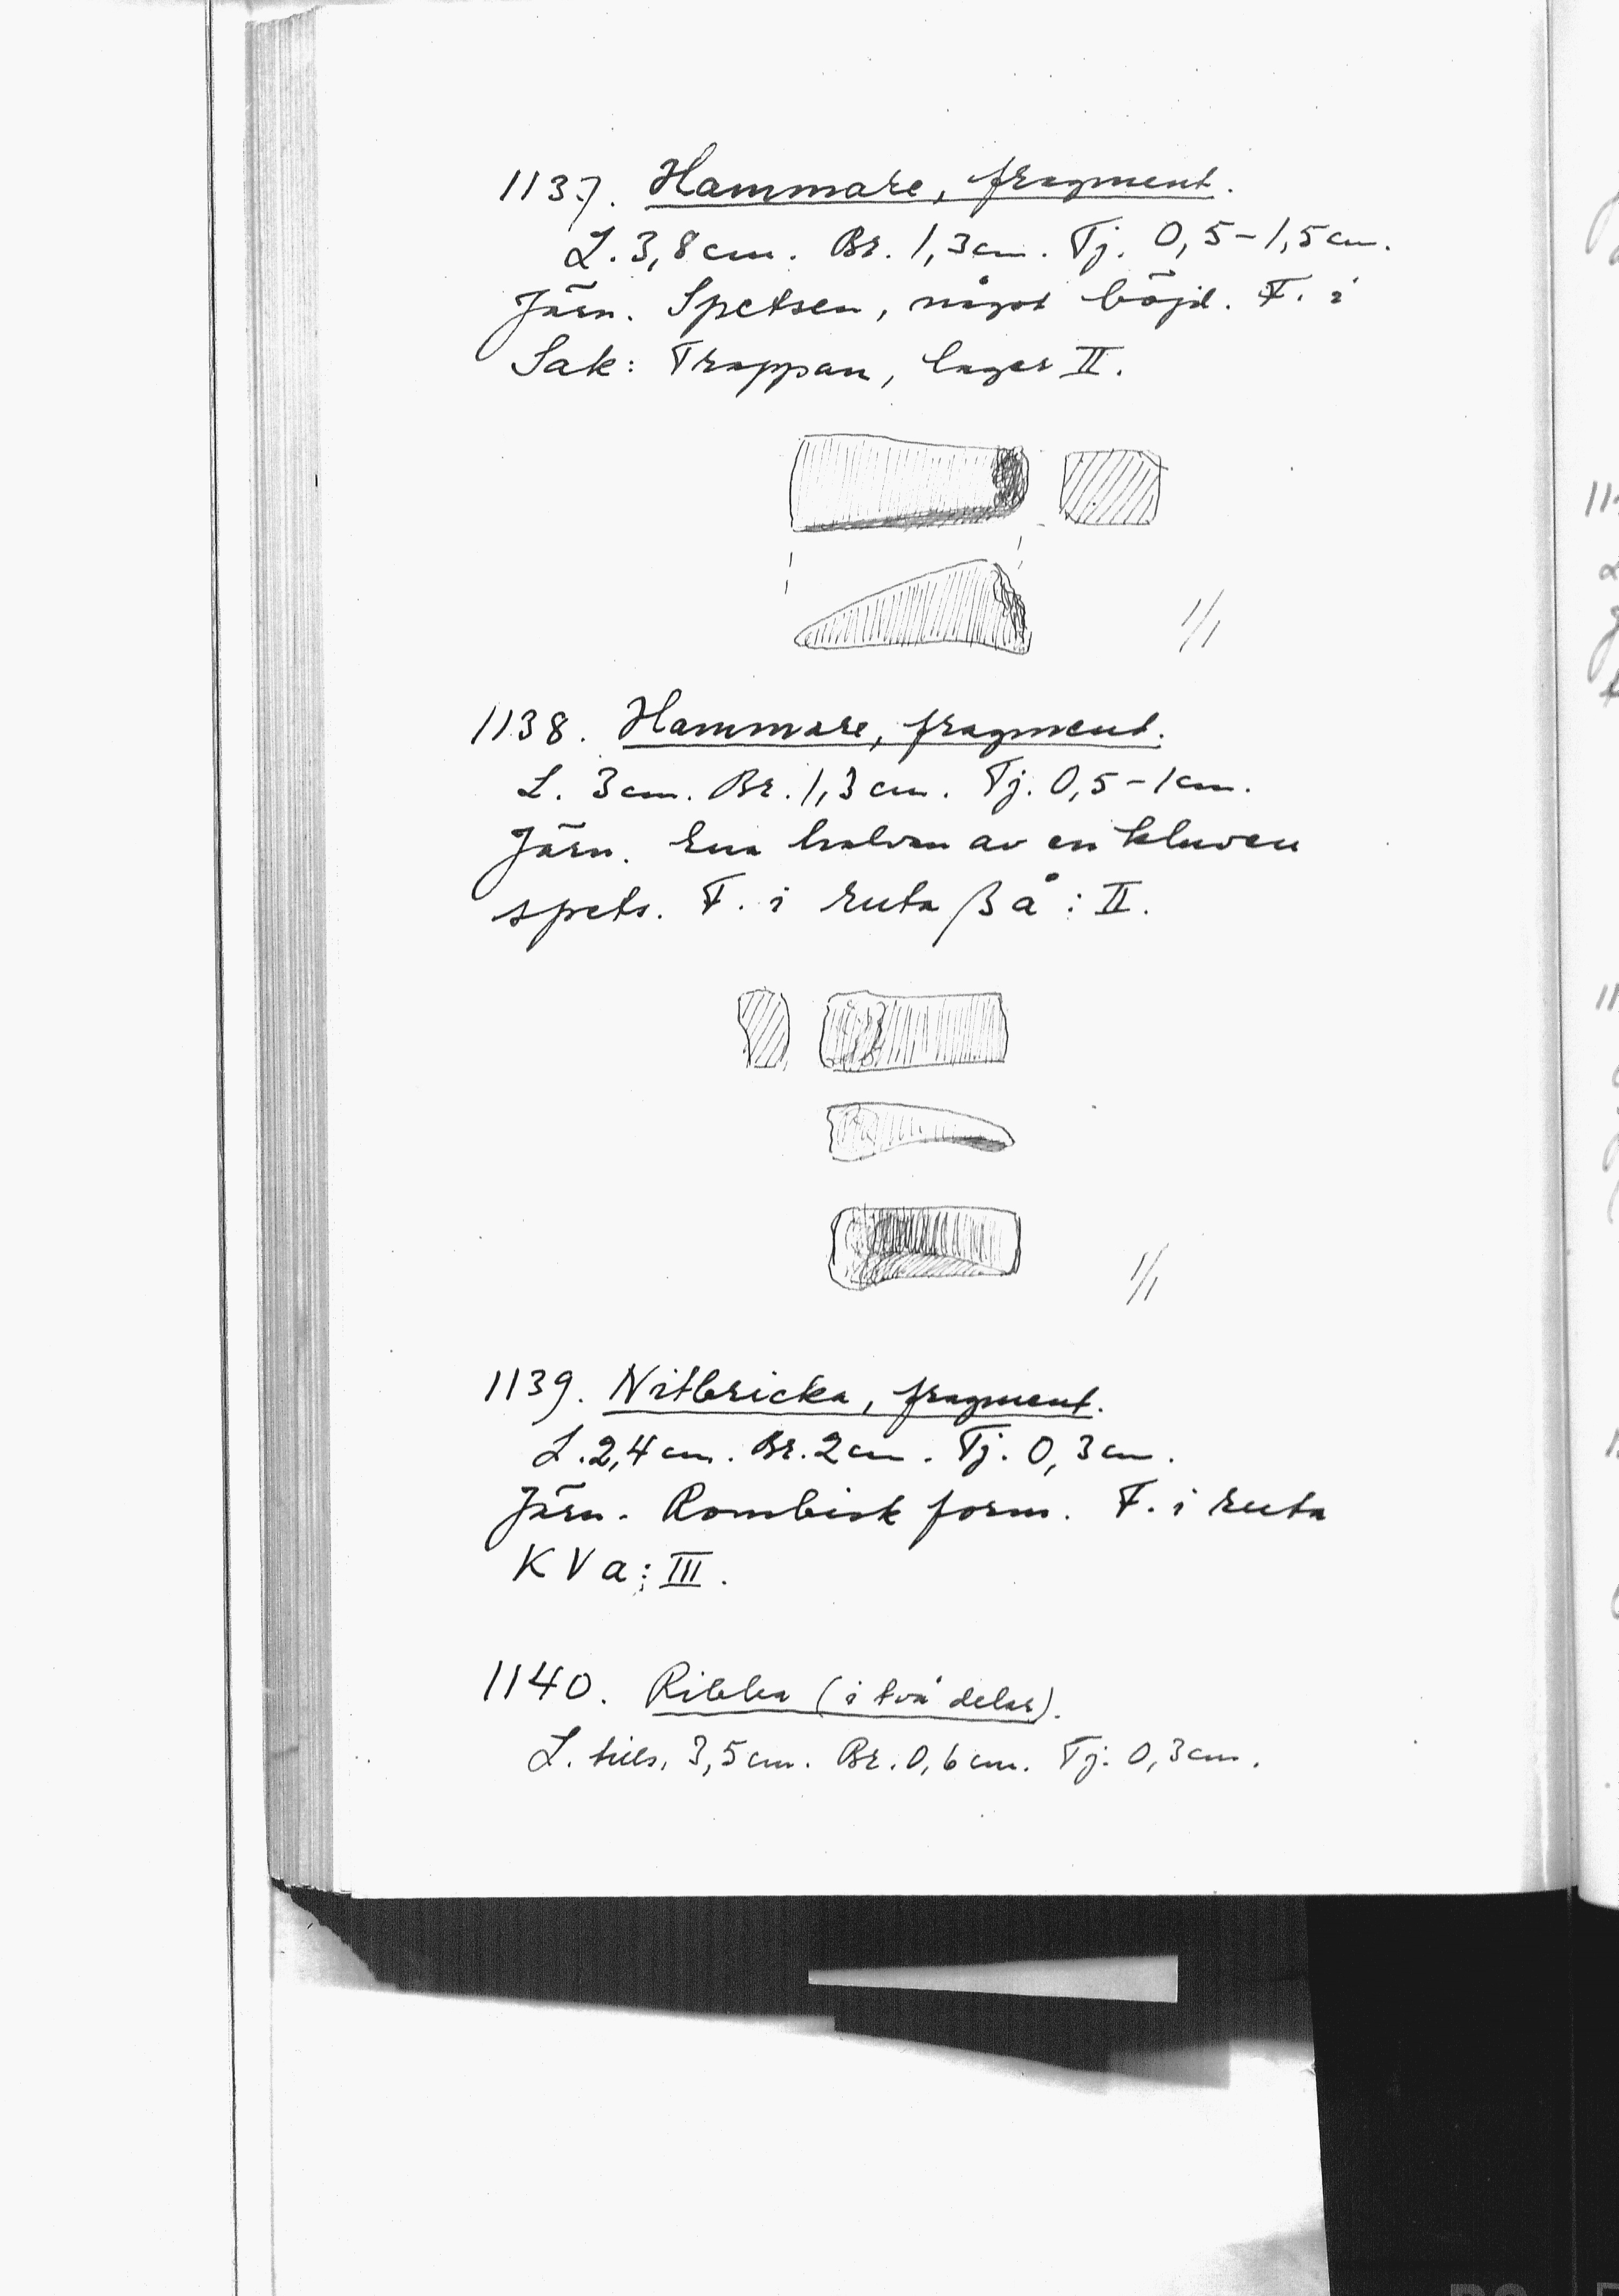 1137. Hammare, fragment.
L. 3,8 cm. Br. 1,3 cm. Tj. 0,5-1,5 cm.
Järn. Spetsen, något böjd. F. i
Sak: Trappan, lager II.
1/1
1138. Hammare, fragment.
L. 3 cm. Br. 1,3 cm. Tj. 0,5-1 cm.
Järn. Ena halvan av en kluven
spets. F. i ruta β å : II.
1/1
1139. Nitbricka, fragment.
L. 2,4 cm. Br. 2 cm. Tj. 0,3 cm.
Järn. Rombisk form. F. i ruta
K V a : III.
1140. Ribba (i två delar).
L. tills. 3,5 cm. Br. 0,6 cm. Tj. 0,3 cm.